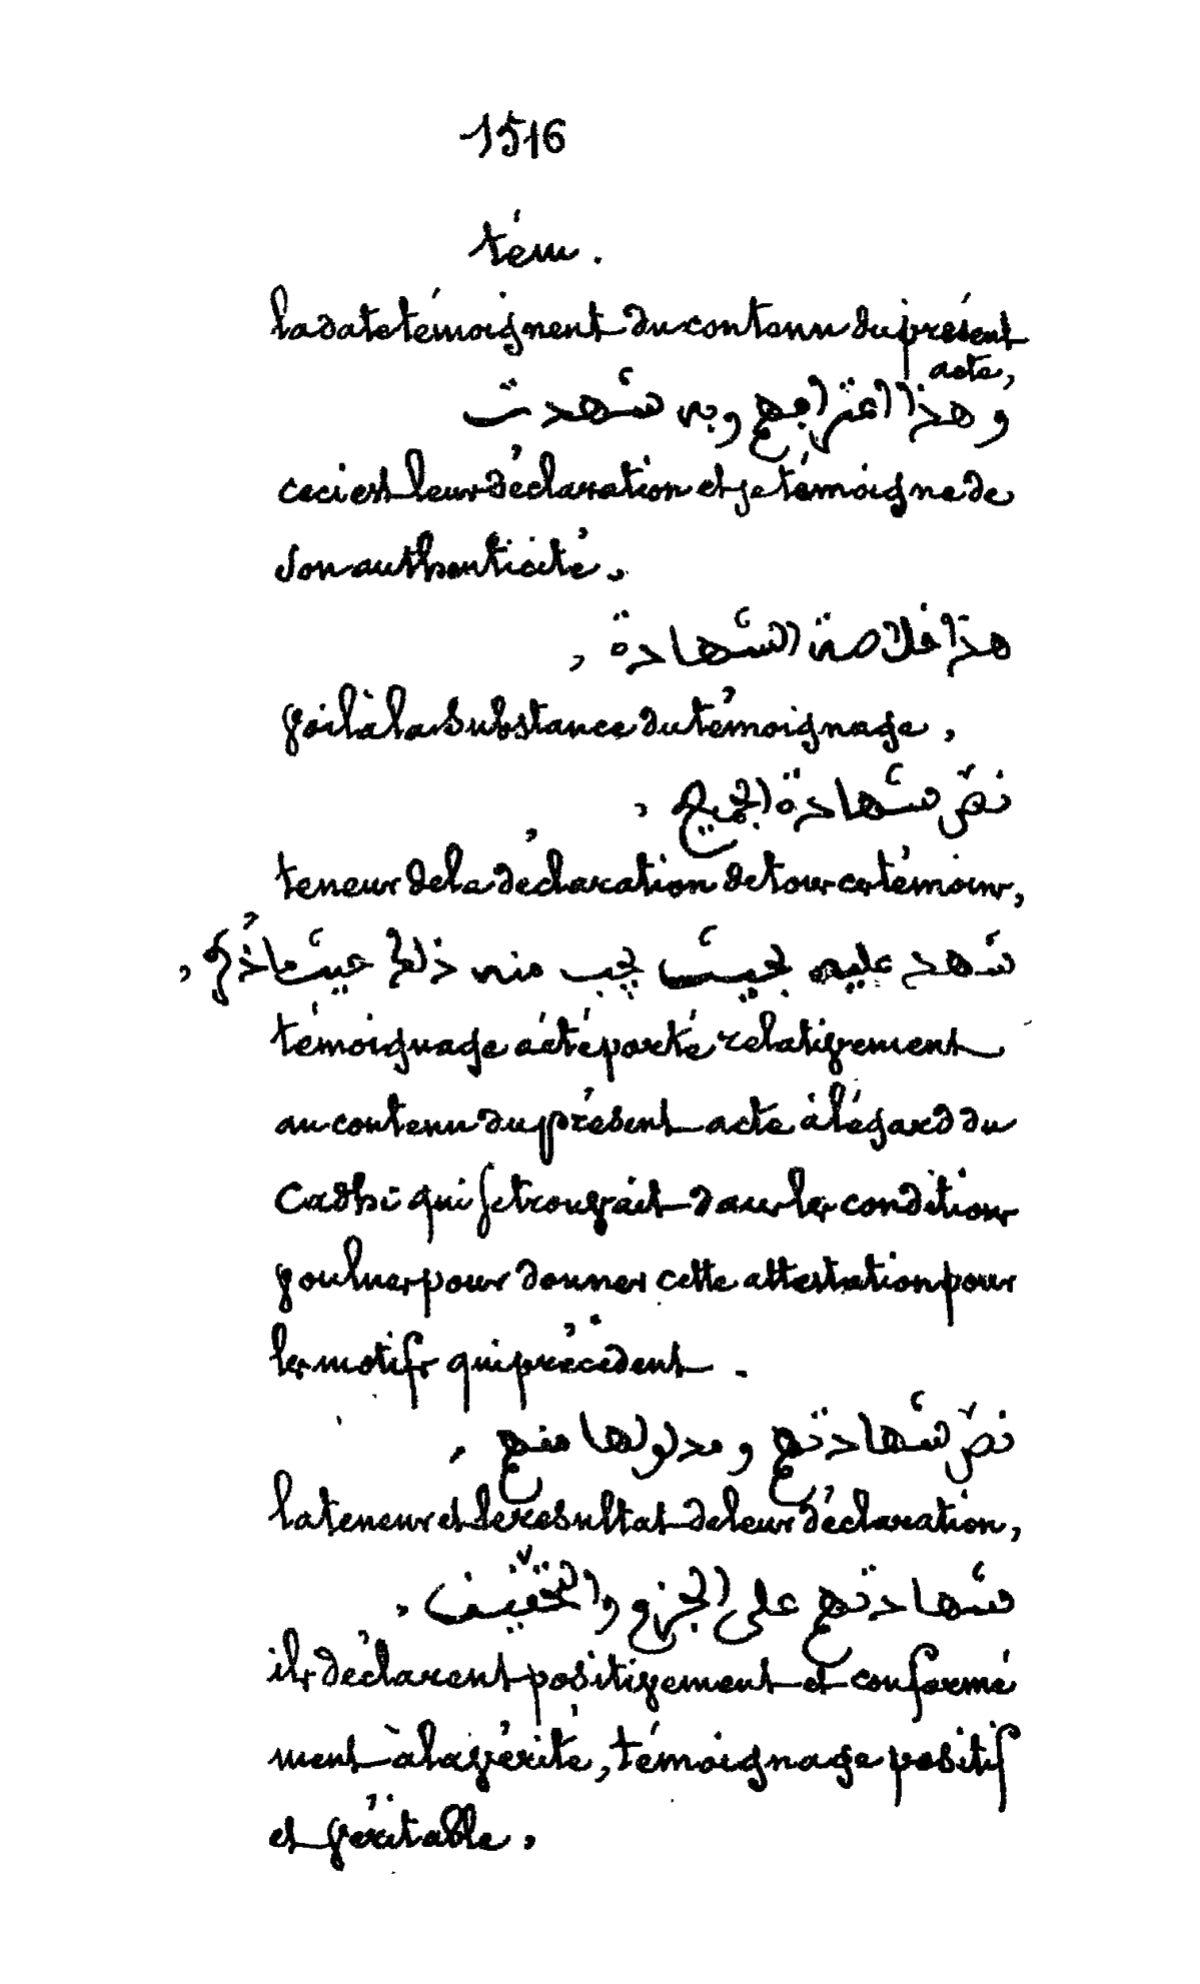 1516
tém.
la date témoignent du contenu du présent
acte,
و هذا اعترافهم وبه شهدت
ceci est leur déclaration et je témoigne de
son authenticité.
هذا خلاصة الشهادة ,
voilà la substance du témoignage,
نصّ شهادة الجميع ,
teneur de la déclaration de tous ces témoins,
شهد عليه بحيث يجب منه ذلك حيث ما ذُكر ,
témoignage a été porté relativement
au contenu du présent acte à l'égard du
Cadhi qui se trouvait dans les conditions
voulues pour donner cette attestation pour
les motifs qui précèdent.
نصّ شهادتهم و مدلولها منهم ,
la teneur et le résultat de leur déclaration,
شهادتهم على الجزم والتحقيق ,
ils déclarent positivement et conformé
ment à la vérité, témoignage positif
et véritable,